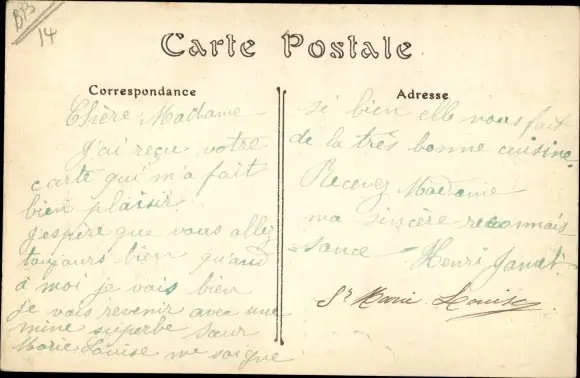 BB
14
Carte Postale
Correspondance
Chère Madame
j'ai reçu votre
carte qui m'a fait
bien plaisir.
j'espère que vous allez
toujours bien quand
à moi je vais bien
je vais revenir avec une
mine superbe sœur
Marie Louise me soigne
Adresse
si bien elle vous fait
de la très bonne cuisine.
Recevez Madame
ma sincère reconnais
=sance - Henri
Sr Marie Louise